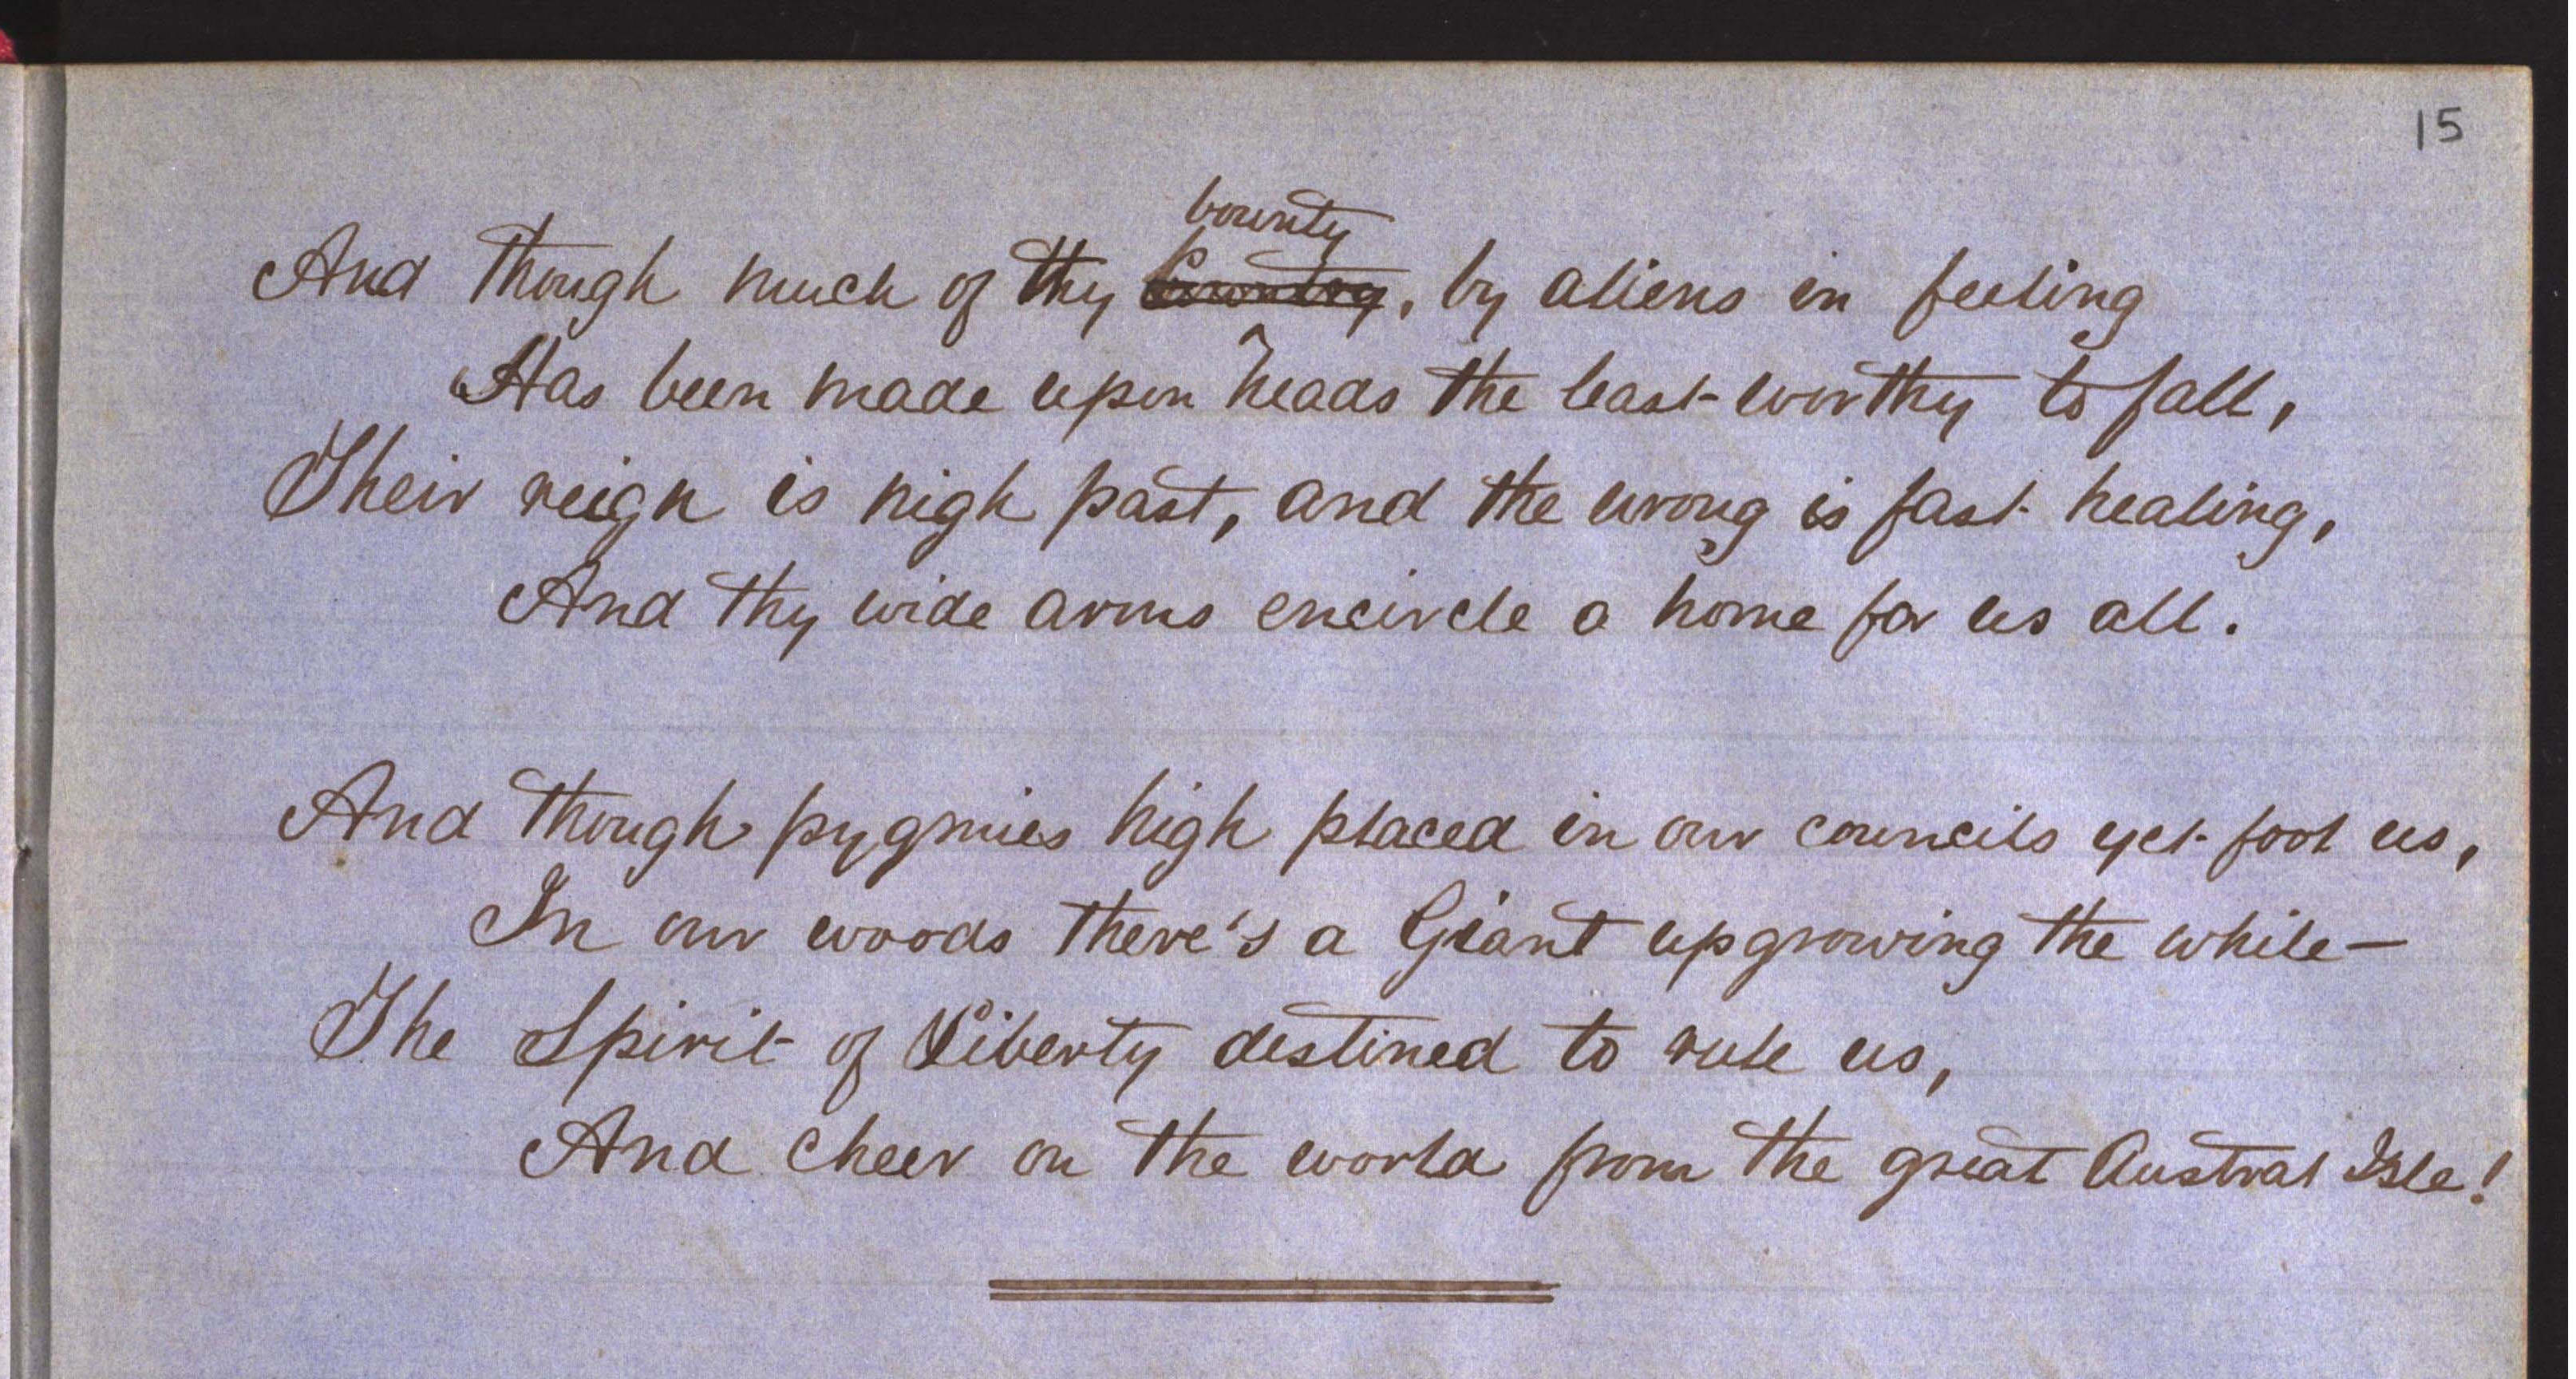 15
bounty
And though much of thy Country, by aliens in feeling
Has been made upon heads the least worthy to fall,
Their reign is nigh past, and the wrong is fast healing,
And thy wide arms encircle a home for us all.
And though pygmies high placed in our councils yet fool us,
In our woods there's a Giant upgrowing the while—
The Spirit of Liberty destined to rule us,
And cheer on the world from the great Austral Isle!